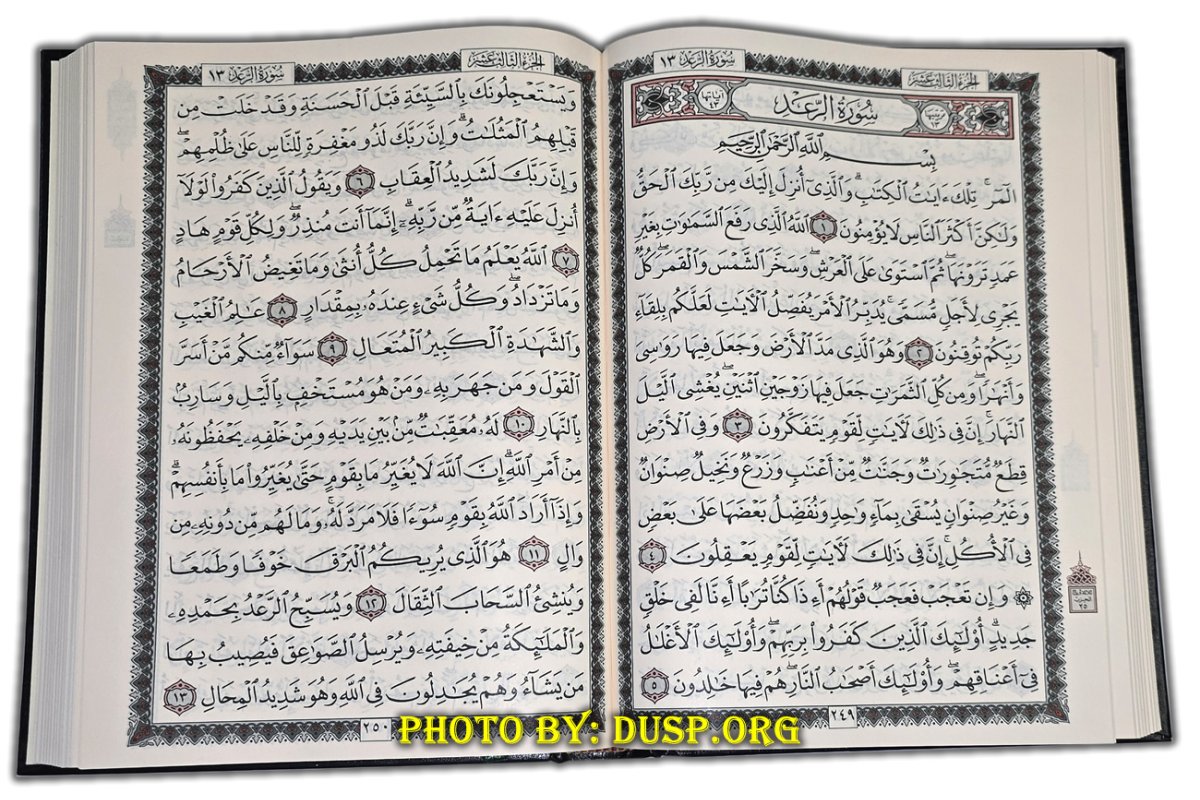 الجُزءُ الثَّالِثَ عَشَرَ
سُورَةُ الرَّعْدِ ١٣
سُورَةُ الرَّعْدِ
آياتها ٤٣
بِسْمِ ٱللَّهِ ٱلرَّحْمَٰنِ ٱلرَّحِيمِ
الٓمٓرۚ تِلْكَ ءَايَٰتُ ٱلْكِتَٰبِۗ وَٱلَّذِىٓ أُنزِلَ إِلَيْكَ مِن رَّبِّكَ ٱلْحَقُّ
وَلَٰكِنَّ أَكْثَرَ ٱلنَّاسِ لَا يُؤْمِنُونَ ١ ٱللَّهُ ٱلَّذِى رَفَعَ ٱلسَّمَٰوَٰتِ بِغَيْرِ
عَمَدٍ تَرَوْنَهَاۖ ثُمَّ ٱسْتَوَىٰ عَلَى ٱلْعَرْشِۖ وَسَخَّرَ ٱلشَّمْسَ وَٱلْقَمَرَۖ كُلٌّ
يَجْرِى لِأَجَلٍ مُّسَمًّىۚ يُدَبِّرُ ٱلْأَمْرَ يُفَصِّلُ ٱلْءَايَٰتِ لَعَلَّكُم بِلِقَآءِ
رَبِّكُمْ تُوقِنُونَ ٢ وَهُوَ ٱلَّذِى مَدَّ ٱلْأَرْضَ وَجَعَلَ فِيهَا رَوَٰسِىَ
وَأَنْهَٰرًاۖ وَمِن كُلِّ ٱلثَّمَرَٰتِ جَعَلَ فِيهَا زَوْجَيْنِ ٱثْنَيْنِۖ يُغْشِى ٱلَّيْلَ
ٱلنَّهَارَۚ إِنَّ فِى ذَٰلِكَ لَءَايَٰتٍ لِّقَوْمٍ يَتَفَكَّرُونَ ٣ وَفِى ٱلْأَرْضِ
قِطَعٌ مُّتَجَٰوِرَٰتٌ وَجَنَّٰتٌ مِّنْ أَعْنَٰبٍ وَزَرْعٌ وَنَخِيلٌ صِنْوَانٌ
وَغَيْرُ صِنْوَانٍ يُسْقَىٰ بِمَآءٍ وَٰحِدٍ وَنُفَضِّلُ بَعْضَهَا عَلَىٰ بَعْضٍ
فِى ٱلْأُكُلِۚ إِنَّ فِى ذَٰلِكَ لَءَايَٰتٍ لِّقَوْمٍ يَعْقِلُونَ ٤
۞ وَإِن تَعْجَبْ فَعَجَبٌ قَوْلُهُمْ أَءِذَا كُنَّا تُرَٰبًا أَءِنَّا لَفِى خَلْقٍ
جَدِيدٍۗ أُو۟لَٰٓئِكَ ٱلَّذِينَ كَفَرُوا۟ بِرَبِّهِمْۖ وَأُو۟لَٰٓئِكَ ٱلْأَغْلَٰلُ
فِىٓ أَعْنَاقِهِمْۖ وَأُو۟لَٰٓئِكَ أَصْحَٰبُ ٱلنَّارِۖ هُمْ فِيهَا خَٰلِدُونَ ٥
٢٤٩
الحزب
٢٥
الجُزءُ الثَّالِثَ عَشَرَ
سُورَةُ الرَّعْدِ ١٣
وَيَسْتَعْجِلُونَكَ بِٱلسَّيِّئَةِ قَبْلَ ٱلْحَسَنَةِ وَقَدْ خَلَتْ مِن
قَبْلِهِمُ ٱلْمَثُلَٰتُۗ وَإِنَّ رَبَّكَ لَذُو مَغْفِرَةٍ لِّلنَّاسِ عَلَىٰ ظُلْمِهِمْۖ
وَإِنَّ رَبَّكَ لَشَدِيدُ ٱلْعِقَابِ ٦ وَيَقُولُ ٱلَّذِينَ كَفَرُوا۟ لَوْلَآ
أُنزِلَ عَلَيْهِ ءَايَةٌ مِّن رَّبِّهِۦٓۗ إِنَّمَآ أَنتَ مُنذِرٌۖ وَلِكُلِّ قَوْمٍ هَادٍ
٧ ٱللَّهُ يَعْلَمُ مَا تَحْمِلُ كُلُّ أُنثَىٰ وَمَا تَغِيضُ ٱلْأَرْحَامُ
وَمَا تَزْدَادُۖ وَكُلُّ شَىْءٍ عِندَهُۥ بِمِقْدَارٍ ٨ عَٰلِمُ ٱلْغَيْبِ
وَٱلشَّهَٰدَةِ ٱلْكَبِيرُ ٱلْمُتَعَالِ ٩ سَوَآءٌ مِّنكُم مَّنْ أَسَرَّ
ٱلْقَوْلَ وَمَن جَهَرَ بِهِۦ وَمَنْ هُوَ مُسْتَخْفٍۭ بِٱلَّيْلِ وَسَارِبٌۢ
بِٱلنَّهَارِ ١٠ لَهُۥ مُعَقِّبَٰتٌ مِّنۢ بَيْنِ يَدَيْهِ وَمِنْ خَلْفِهِۦ يَحْفَظُونَهُۥ
مِنْ أَمْرِ ٱللَّهِۗ إِنَّ ٱللَّهَ لَا يُغَيِّرُ مَا بِقَوْمٍ حَتَّىٰ يُغَيِّرُوا۟ مَا بِأَنفُسِهِمْۗ
وَإِذَآ أَرَادَ ٱللَّهُ بِقَوْمٍ سُوٓءًا فَلَا مَرَدَّ لَهُۥۚ وَمَا لَهُم مِّن دُونِهِۦ مِن
وَالٍ ١١ هُوَ ٱلَّذِى يُرِيكُمُ ٱلْبَرْقَ خَوْفًا وَطَمَعًا
وَيُنشِئُ ٱلسَّحَابَ ٱلثِّقَالَ ١٢ وَيُسَبِّحُ ٱلرَّعْدُ بِحَمْدِهِۦ
وَٱلْمَلَٰٓئِكَةُ مِنْ خِيفَتِهِۦ وَيُرْسِلُ ٱلصَّوَٰعِقَ فَيُصِيبُ بِهَا
مَن يَشَآءُ وَهُمْ يُجَٰدِلُونَ فِى ٱللَّهِ وَهُوَ شَدِيدُ ٱلْمِحَالِ ١٣
٢٥٠
PHOTO BY: DUSP.ORG